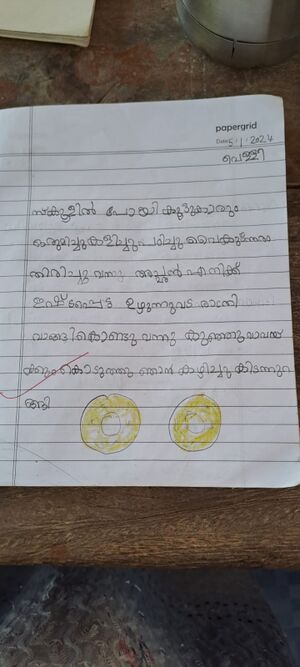 papergrid
Date: 5/1/2024
വെള്ളി
സ്കൂളിൽ പോയി കൂട്ടുകാരും
ഒരുമിച്ചു കളിച്ചു പഠിച്ചു വൈകുന്നേരം
തിരിച്ചു വന്നു അച്ഛൻ എനിക്ക്
ഇഷ്ടപ്പെട്ട ഉഴുന്നുവട രാത്രി
വാങ്ങികൊണ്ടു വന്നു കുഞ്ഞുവാവയ
ക്കും കൊടുത്തു ഞാൻ കഴിച്ചു കിടന്നുറ
ങ്ങി